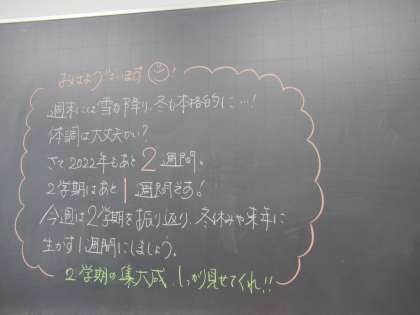 おはようございます!
週末には雪が降り、冬も本格的に…!
体調は大丈夫かい?
さて2022年もあと2週間。
2学期はあと1週間です!
今週は2学期を振り返り、冬休みや来年に
生かす1週間にしましょう。
2学期の集大成、しっかり見せてくれ!!